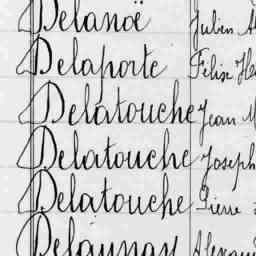 Delanoë Julien
Delaporte Félix
Delatouche Jean
Delatouche Joseph
Delatouche Pierre
Delaunay